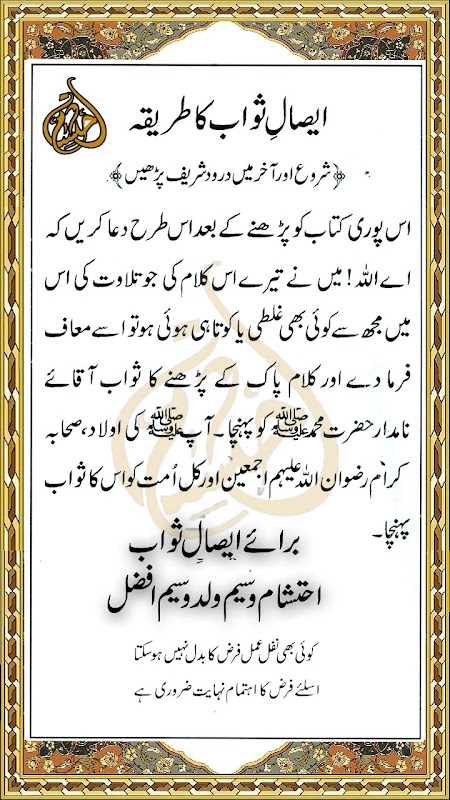 ایصالِ ثواب کا طریقہ
﴿شروع اور آخر میں درود شریف پڑھیں﴾
اس پوری کتاب کو پڑھنے کے بعد اس طرح دعا کریں کہ
اے اللہ! میں نے تیرے اس کلام کی جو تلاوت کی اس
میں مجھ سے کوئی بھی غلطی یا کوتاہی ہوئی ہو تو اسے معاف
فرما دے اور کلام پاک کے پڑھنے کا ثواب آقائے
نامدار حضرت محمد ﷺ کو پہنچا۔ آپ ﷺ کی اولاد، صحابہ
کرام رضوان اللہ علیہم اجمعین اور کل اُمت کو اس کا ثواب
پہنچا۔
برائے ایصالِ ثواب
احتشام وسیم ولد وسیم افضل
کوئی بھی نفل عمل فرض کا بدل نہیں ہو سکتا
اسلئے فرض کا اہتمام نہایت ضروری ہے